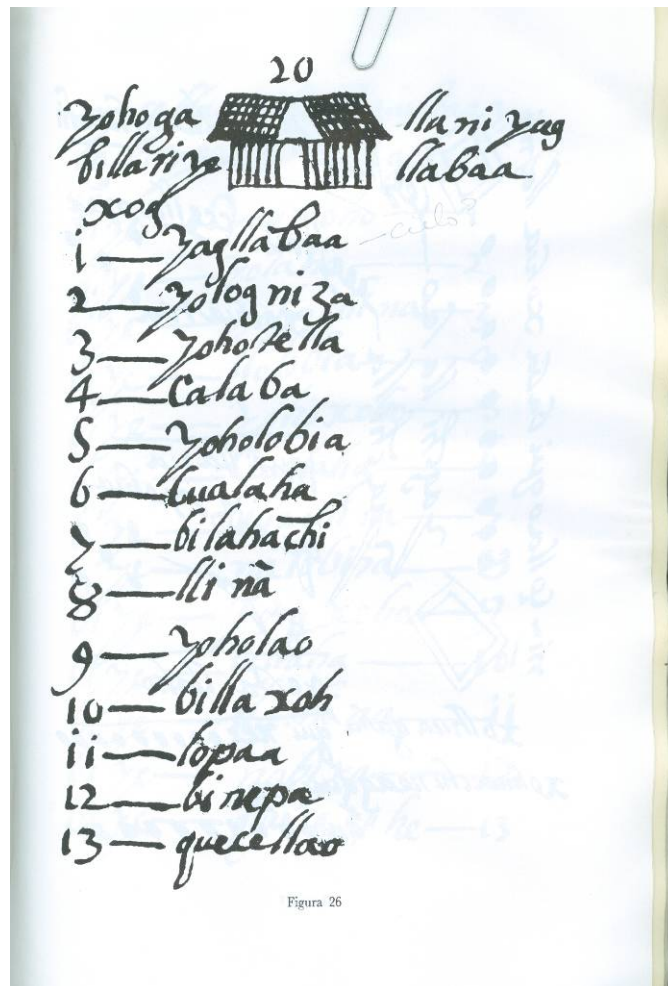 20
yohoga
billarize
xog
lla ni yag
llabaa
1 — yagllabaa
2 — yologniza
3 — yohotella
4 — Calaba
5 — yoholobia
6 — lualaha
7 — bilahachi
8 — lli nã
9 — yoholao
10 — billa xoh
ii — lopaa
12 — bi nepa
13 — quecellao
Figura 26